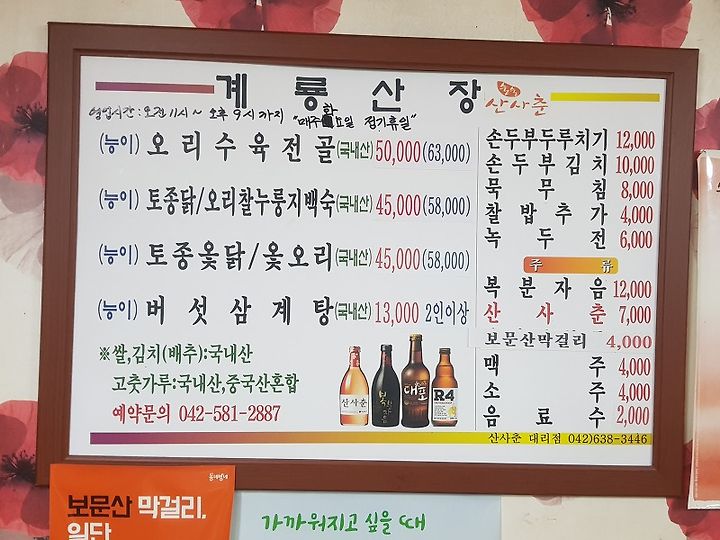 계룡산장
산사춘
영업시간 : 오전 11시 ~ 오후 9시 까지 "매주 화요일 정기휴일"
(능이) 오리수육전골(국내산) 50,000(63,000)
(능이) 토종닭/오리찰누룽지백숙(국내산) 45,000(58,000)
(능이) 토종옻닭/옻오리(국내산) 45,000(58,000)
(능이) 버섯삼계탕(국내산) 13,000 2인이상
※쌀,김치(배추):국내산
고춧가루:국내산,중국산혼합
예약문의 042-581-2887
산사춘
대포
R4
손두부두루치기 12,000
손두부김치 10,000
묵무침 8,000
찰밥추가 4,000
녹두전 6,000
주류
복분자음 12,000
산사춘 7,000
보문산막걸리 4,000
맥주 4,000
소주 4,000
음료수 2,000
산사춘 대리점 042)638-3446
보문산 막걸리,
일단
가까워지고 싶을 때